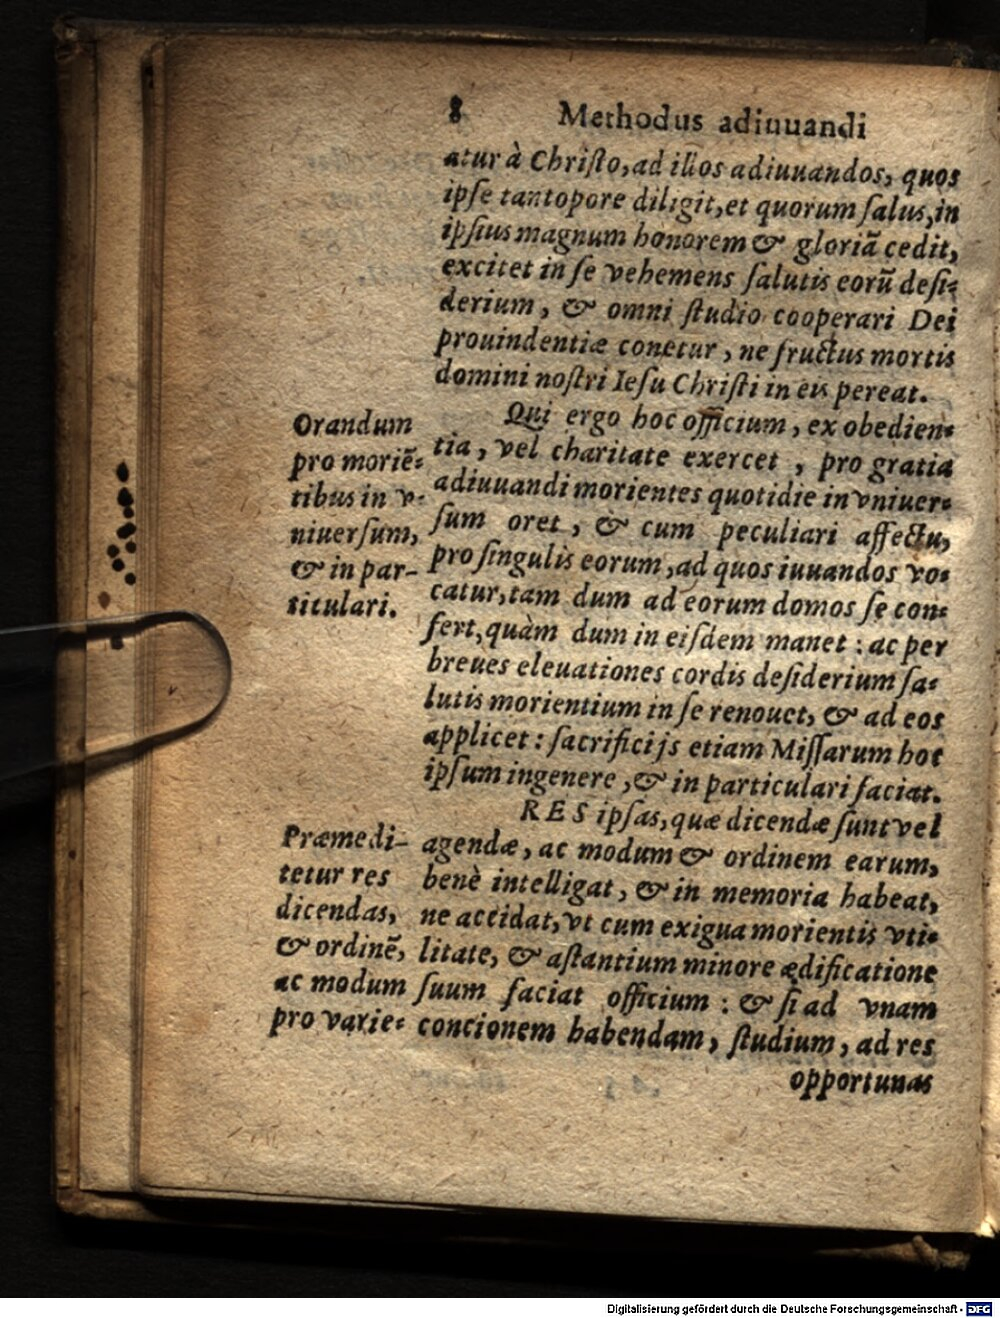 8 Methodus adiuuandi
atur à Christo, ad illos adiuuandos, quos
ipse tantopore diligit, et quorum salus, in
ipsius magnum honorem & gloriã cedit,
excitet in se vehemens salutis eorũ desi-
derium, & omni studio cooperari Dei
prouindentiæ conetur, ne fructus mortis
domini nostri Iesu Christi in eis pereat.
Qui ergo hoc officium, ex obedien-
tia, vel charitate exercet, pro gratia
adiuuandi morientes quotidie in vniuer-
sum oret, & cum peculiari affectu,
pro singulis eorum, ad quos iuuandos vo-
catur, tam dum ad eorum domos se con-
fert, quàm dum in eisdem manet : ac per
breues eleuationes cordis desiderium sa-
lutis morientium in se renouet, & ad eos
applicet : sacrificijs etiam Missarum hoc
ipsum ingenere, & in particulari faciat.
Orandum
pro moriẽ-
tibus in v-
niuersum,
& in par-
ticulari.
RES ipsas, quæ dicendæ sunt vel
agendæ, ac modum & ordinem earum,
benè intelligat, & in memoria habeat,
ne accidat, vt cum exigua morientis vti-
litate, & astantium minore ædificatione
suum faciat officium : & si ad vnam
concionem habendam, studium, ad res
Præmedi-
tetur res
dicendas,
& ordinẽ,
ac modum
pro varie-
opportunas
Digitalisierung gefördert durch die Deutsche Forschungsgemeinschaft - DFG